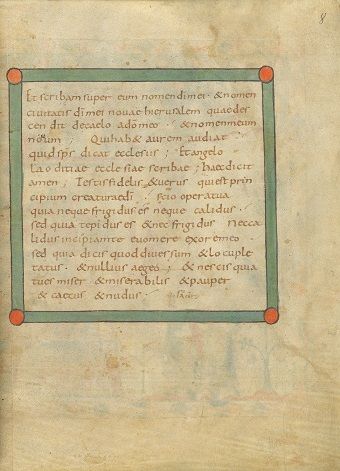 8
Et scribam super eum nomen dīmei · & nomen
civitatis dīmei novae hierusalem quae des
cendit decaelo adōmeo · & nomen meum
novum ; Qui hab& aurem audiat
quid sp̄s dicat ecclesiis ; Et angelo
laoditiae ecclesiae scribae ; haec dicit
amen ; Testis fidelis & verus qui est prin
cipium creaturae dī · Scio opera tua
quia neque frigidus es neque calidus ·
sed quia tepidus es & nec frigidus nec ca
lidus incipiam te evomere exore meo ·
sed quia dicis quod dives sum & locuple
tatus · & nullius aegeo ; & nescis quia
tu es miser & miserabilis & pauper
& caecus & nudus ·